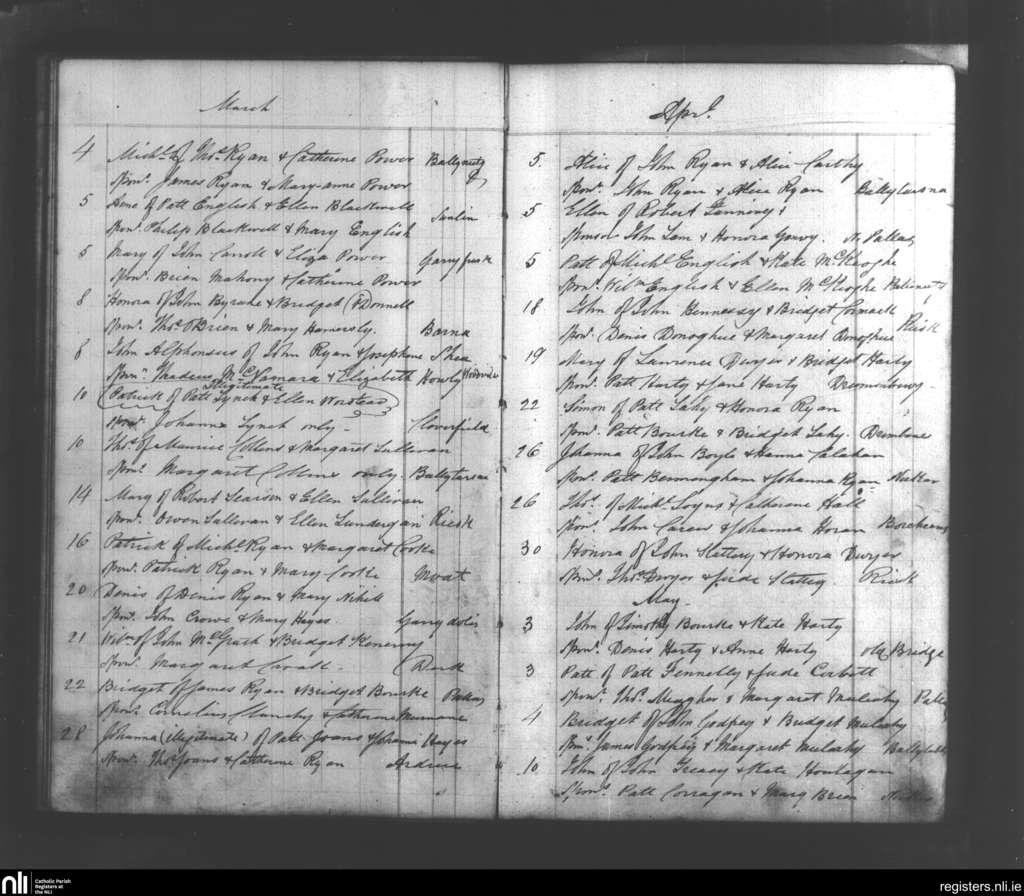 March
4 Michl. of Thos. Ryan & Catherine Power
Spon. James Ryan & Mary-anne Power
5 of Patt English & Ellen Blackwell
Spon. Philip Blackwell & Mary English
5 Mary of John Carroll & Eliza Power
Spon. Brien Mahony & Catherine Power
8 Honora of John Byrane & Bridget O'Donnell
Spon. Thos. O'Brien & Mary Hamersly. Barna
8 John Alphonsus of John Ryan & Josephine Shea
Spon. Thadeus McNamara & Elizabeth Howly
Illegitimate
10 (Patrick of Patt Lynch & Ellen
Spon. Johanna Lynch only - Cloverfield
10 Thos. of Maurice Collins & Margaret Sullivan
Spon. Margaret Collins only.
14 Mary of Robert & Ellen Sullivan
Spon. Owen Sullivan & Ellen Lundergan Riesk
16 Patrick of Michl. Ryan & Margaret Cooke
Spon. Patrick Ryan & Mary Cooke Moat
20 Denis of Denis Ryan & Mary Nihill
Spon. John Crowe & Mary Hayes. Garrydolis
21 Wilm. of John McGrath & Bridget
Spon. Margaret - Derk
22 Bridget of James Ryan & Bridget Bourke Pallas
Spon. Cornelius Clanchy & Catherine Murnane
28 Johanna (Illegitimate) of Patt Joans & Johanna Hayes
Spon. Thos. Joans & Catherine Ryan
Aprl.
5. Alice of John Ryan & Alice Carthy
Spon. John Ryan & Alice Ryan
5 Ellen of Robert Fanning &
Sponsor John Lam & Honora N. Pallas
5 Patt of Michl. English & Kate McKeoghe
Spon. Wilm. English & Ellen McKeoghe
18 John of John Hennessy & Bridget Cormack
Spon. Denis Donoghue & Margaret Donoghue Riesk
19 Mary of Laurence Dwyer & Bridget Harty
Spon. Patt Harty & Jane Harty
22 Simon of Patt Lahy & Honora Ryan
Spon. Patt Bourke & Bridget Lahy.
26 Johanna of John Boyle & Hanna Calahan
Spon. Patt Bermongham & Johanna Ryan
26 Thos. of Michl. & Catherine Hall
Spon. John Carew & Johanna Horan
30 Honora of John Slattery & Honora Dwyer
Spon. Thos. Dwyer & Jude Slattery Riesk
May
3 John of Timothy Bourke & Kate Harty
Spon. Denis Harty & Anne Harty Old Bridge
3 Patt of Patt Fennelly & Jude Corbett
Spon. Thos. Meagher & Margaret Mulcahy Pallas
4 Bridget of John Godfrey & Bridget Mulcahy
Spon. James Godfrey & Margaret Mulcahy
10 John of John & Kate Houlagan
Spon. Patt Corragan & Mary Brien
nli Catholic Parish Registers at the NLI
registers.nli.ie